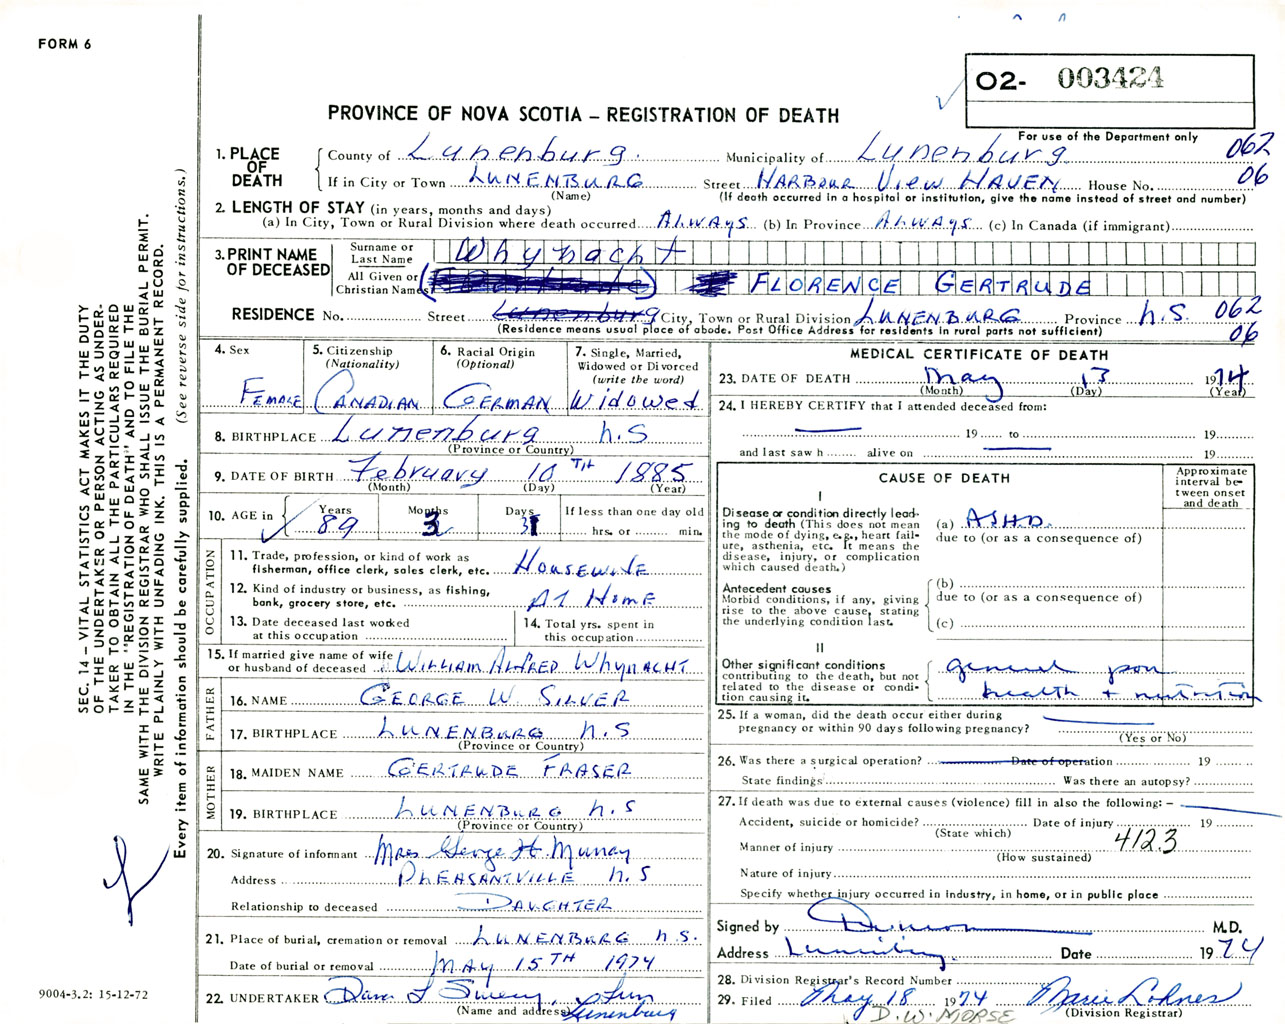 FORM 6
02- 003424
PROVINCE OF NOVA SCOTIA – REGISTRATION OF DEATH
For use of the Department only
SEC. 14 – VITAL STATISTICS ACT MAKES IT THE DUTY
OF THE UNDERTAKER OR PERSON ACTING AS UNDER-
TAKER TO OBTAIN ALL THE PARTICULARS REQUIRED
IN THE "REGISTRATION OF DEATH" AND TO FILE THE
SAME WITH THE DIVISION REGISTRAR WHO SHALL ISSUE THE BURIAL PERMIT.
WRITE PLAINLY WITH UNFADING INK. THIS IS A PERMANENT RECORD.
Every item of information should be carefully supplied. (See reverse side for instructions.)
1. PLACE OF DEATH
County of Lunenburg. Municipality of Lunenburg 062
If in City or Town LUNENBURG Street HARBOUR VIEW HAVEN House No. 06
(Name) (If death occurred in a hospital or institution, give the name instead of street and number)
2. LENGTH OF STAY (in years, months and days)
(a) In City, Town or Rural Division where death occurred ALWAYS (b) In Province ALWAYS (c) In Canada (if immigrant)
3. PRINT NAME OF DECEASED
Surname or Last Name Whynacht
All Given or Christian Names FLORENCE GERTRUDE
RESIDENCE No. Street Lunenburg City, Town or Rural Division LUNENBURG Province N.S. 062
(Residence means usual place of abode. Post Office Address for residents in rural parts not sufficient) 06
4. Sex
FEMALE
5. Citizenship
(Nationality)
CANADIAN
6. Racial Origin
(Optional)
GERMAN
7. Single, Married,
Widowed or Divorced
(write the word)
Widowed
8. BIRTHPLACE Lunenburg N.S
(Province or Country)
9. DATE OF BIRTH February 10TH 1885
(Month) (Day) (Year)
10. AGE in Years Months Days If less than one day old
89 3 3 hrs. or min.
OCCUPATION
11. Trade, profession, or kind of work as
fisherman, office clerk, sales clerk, etc. HOUSEWIFE
12. Kind of industry or business, as fishing,
bank, grocery store, etc. AT HOME
13. Date deceased last worked
at this occupation
14. Total yrs. spent in
this occupation
15. If married give name of wife
or husband of deceased WILLIAM ALFRED WHYNACHT
FATHER
16. NAME GEORGE W. SILVER
17. BIRTHPLACE LUNENBURG N.S
(Province or Country)
MOTHER
18. MAIDEN NAME GERTRUDE FRASER
19. BIRTHPLACE LUNENBURG N.S
(Province or Country)
20. Signature of informant Mrs George H Murray
Address PLEASANTVILLE N.S
Relationship to deceased DAUGHTER
21. Place of burial, cremation or removal LUNENBURG N.S.
Date of burial or removal MAY 15TH 1974
22. UNDERTAKER
(Name and address) Lunenburg
9004-3.2: 15-12-72
MEDICAL CERTIFICATE OF DEATH
23. DATE OF DEATH May 13 1974
(Month) (Day) (Year)
24. I HEREBY CERTIFY that I attended deceased from:
19 to 19
and last saw h alive on 19
CAUSE OF DEATH
Approximate
interval be-
tween onset
and death
I
Disease or condition directly lead-
ing to death (This does not mean
the mode of dying, e.g., heart fail-
ure, asthenia, etc. It means the
disease, injury, or complication
which caused death.)
(a) ASHD.
due to (or as a consequence of)
Antecedent causes
Morbid conditions, if any, giving
rise to the above cause, stating
the underlying condition last.
(b)
due to (or as a consequence of)
(c)
II
Other significant conditions
contributing to the death, but not
related to the disease or condi-
tion causing it.
general poor
health + nutrition
25. If a woman, did the death occur either during
pregnancy or within 90 days following pregnancy?
(Yes or No)
26. Was there a surgical operation? Date of operation 19
State findings Was there an autopsy?
27. If death was due to external causes (violence) fill in also the following: –
Accident, suicide or homicide? Date of injury 19
(State which)
Manner of injury 4123
(How sustained)
Nature of injury
Specify whether injury occurred in industry, in home, or in public place
Signed by M.D.
Address Lunenburg Date 1974
28. Division Registrar's Record Number
29. Filed May 18 1974 Marie Lohnes
D.W. MORSE (Division Registrar)